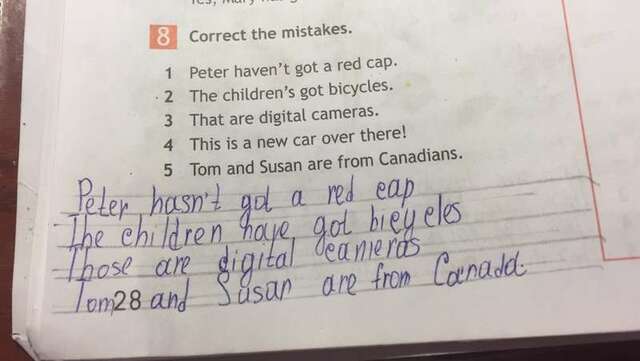 8 Correct the mistakes.
1 Peter haven't got a red cap.
2 The children's got bicycles.
3 That are digital cameras.
4 This is a new car over there!
5 Tom and Susan are from Canadians.
Peter hasn't got a red cap
The children have got bicycles
Those are digital cameras
Tom28 and Susan are from Canada.